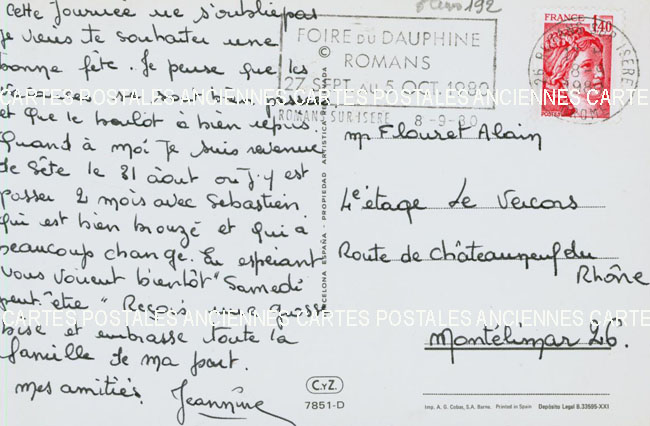 Cette Journée ne s'oublie pas
je viens te souhaiter une
bonne fête. Je pense que les
vacances se sont bien passé
et que le boulot a bien repris.
Quand à moi Je suis revenue
de Sête le 31 aout ou j'y est
passer 2 mois avec Sébastien
qui est bien bronzé et qui a
beaucoup change. En espérant
vous voir bientôt "Samedi
peut-être" Reçois une grosse
bise et embrasse toute la
famille de ma part.
mes amitiés. Jeannine
192
FOIRE DU DAUPHINE
ROMANS
27 SEPT. AU 5 OCT. 1980
ROMANS-SUR-ISERE 8-9-80
FRANCE 1,40
26 ISERE
Mr Flouret Alain
4e étage Le Vercors
Route de Châteauneuf du
Rhône
Montélimar 26.
CARTES POSTALES ANCIENNES CARTES POSTALES ANCIENNES CARTES
CARTES POSTALES ANCIENNES CARTES POSTALES ANCIENNES CARTES
BARCELONA ESPAÑA - PROPIEDAD ARTISTICA REGISTRADA ©
C.y Z.
7851-D
Imp. A. G. Cobas, S.A. Barna. Printed in Spain Depósito Legal B.33595-XXI